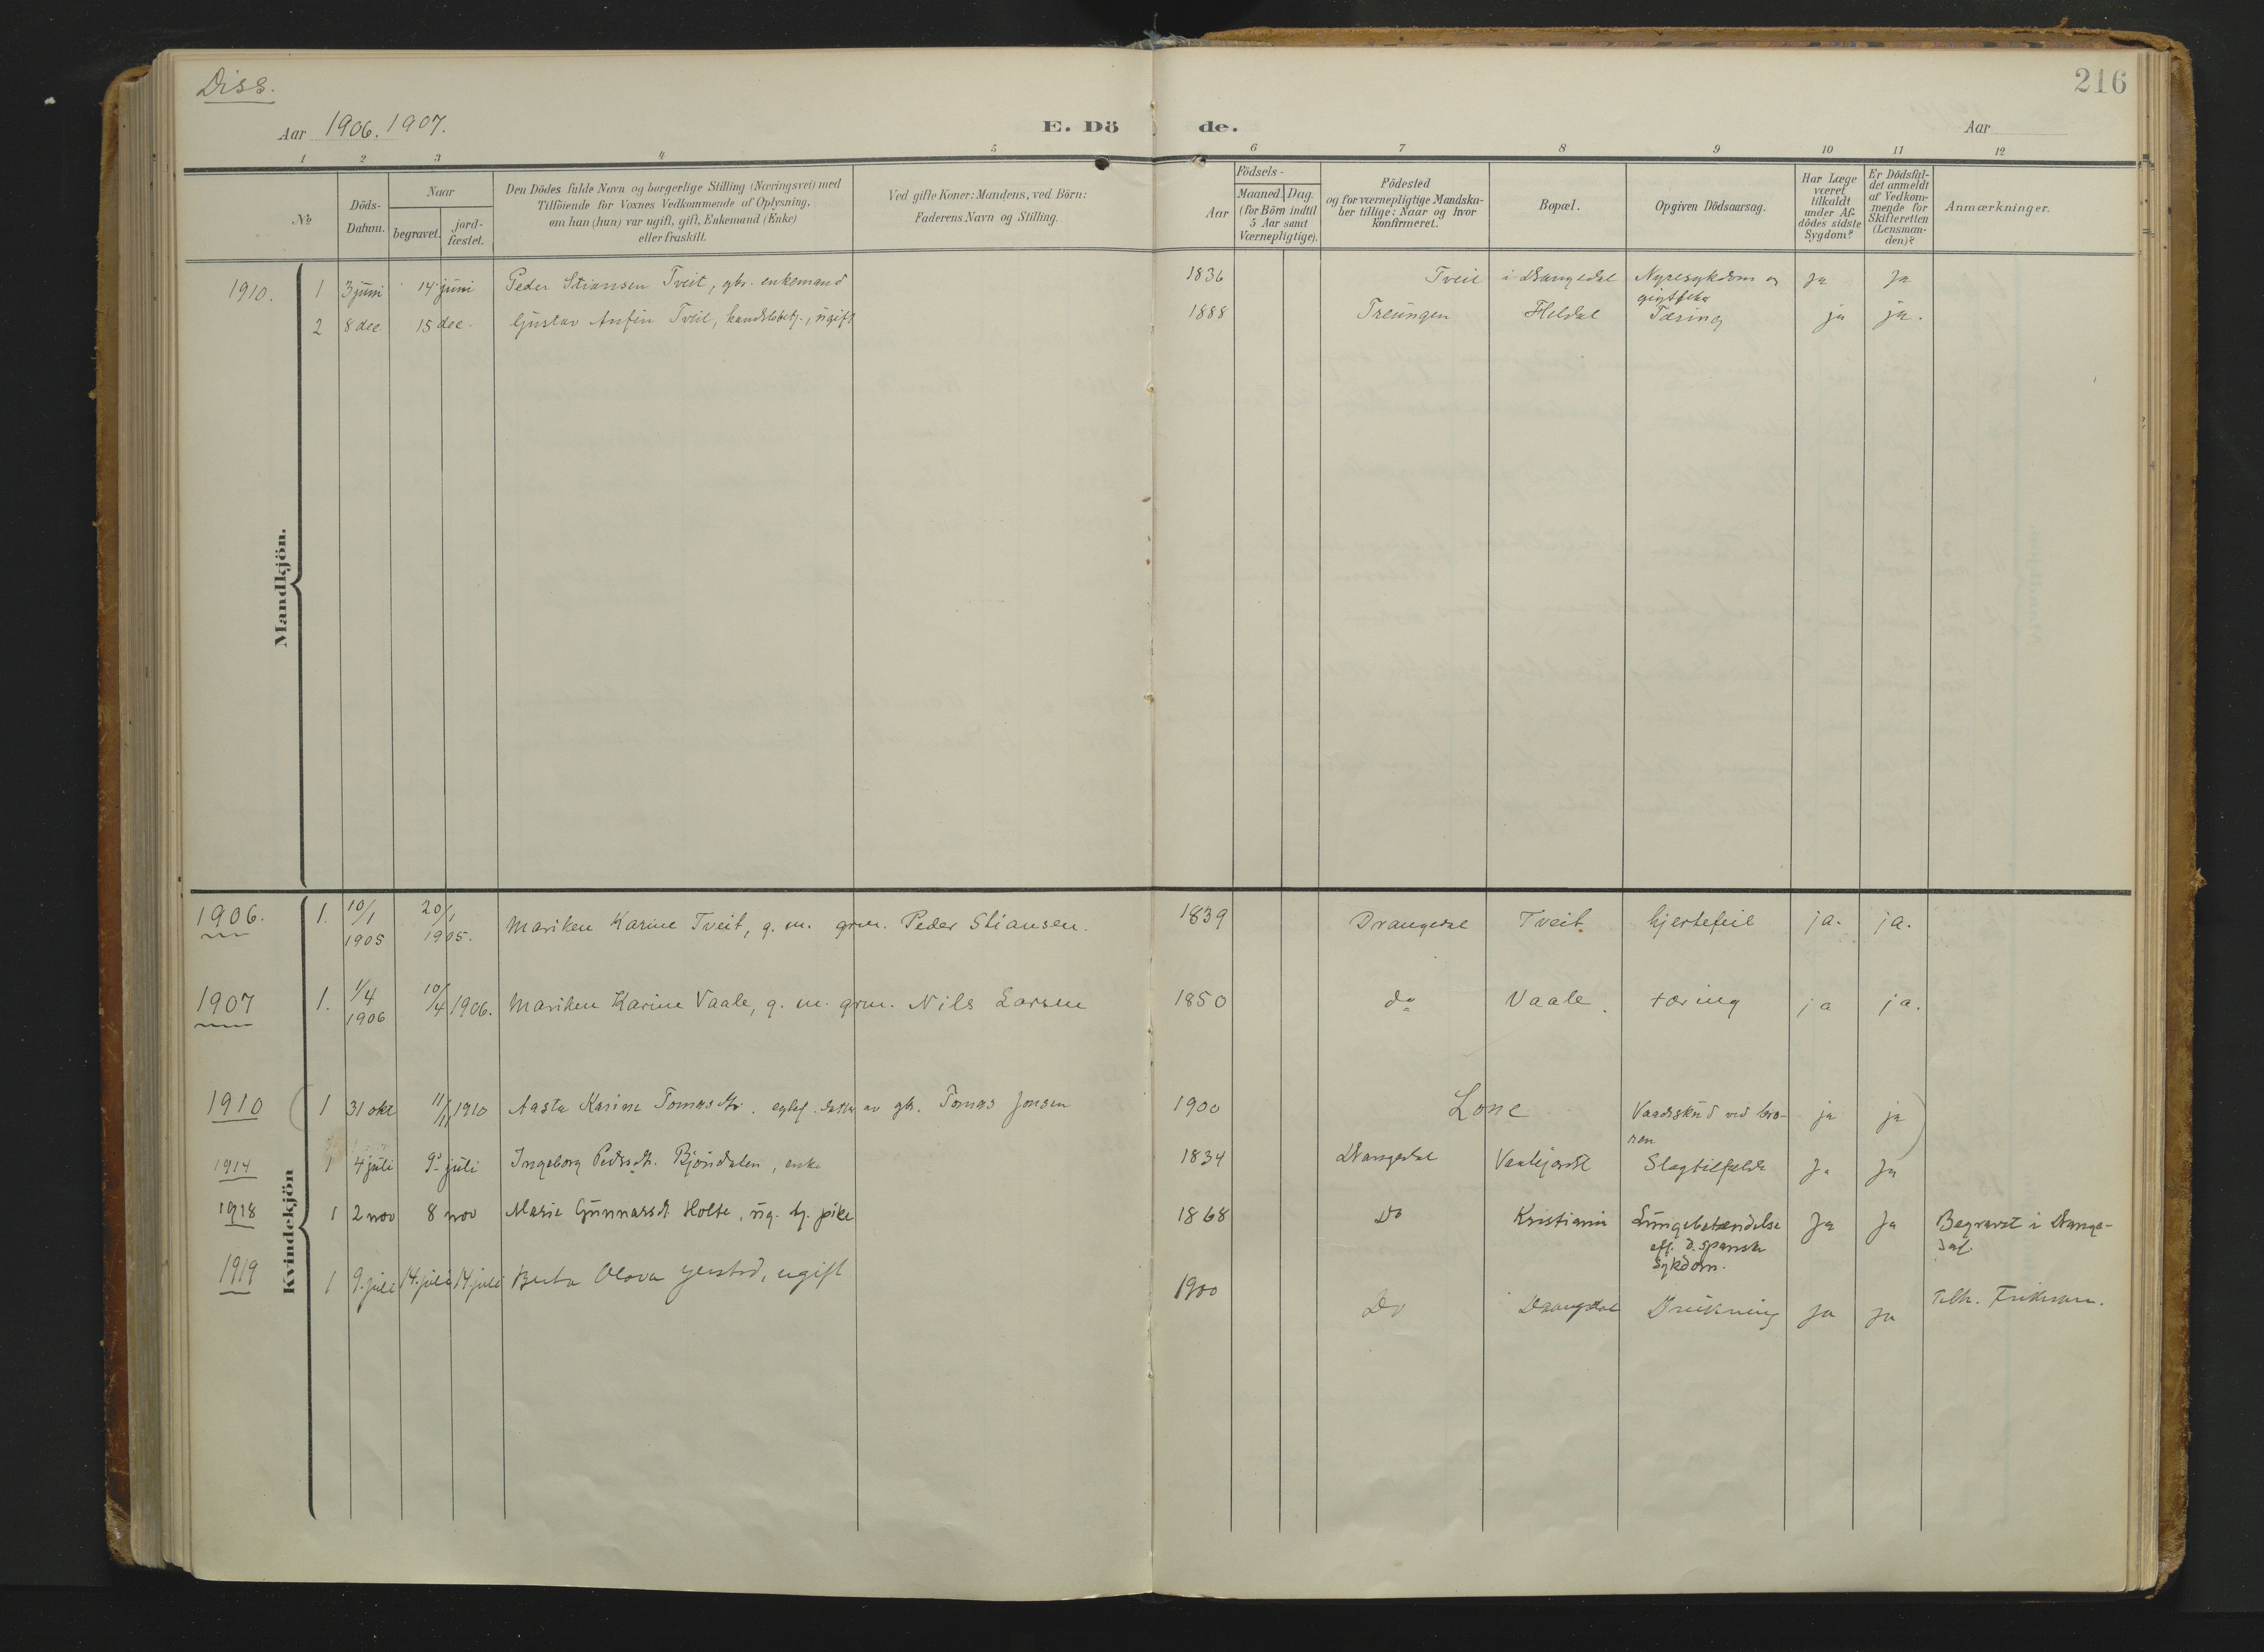 Diss.
216
Aar 1906. 1907.
E. Dö de.
Aar
1 2 3 4 5 6 7 8 9 10 11 12
No
Döds-Datum.
Naar
begravet.
jord-fæstet.
Den Dödes fulde Navn og borgerlige Stilling (Næringsvei) med
Tilföiende for Voxnes Vedkommende af Oplysning,
om han (hun) var ugift, gift, Enkemand (Enke)
eller fraskilt.
Ved gifte Koner: Mandens, ved Börn:
Faderens Navn og Stilling.
Födsels-
Aar
Maaned. Dag.
(for Börn indtil
5 Aar samt
Værnepligtige).
Födested
og for værnepligtige Mandska-
ber tillige: Naar og hvor
konfirmeret.
Bopæl.
Opgiven Dödsaarsag.
Har Læge
været
tilkaldt
under Af-
dödes sidste
Sygdom?
Er Dödsfal-
det anmeldt
af Vedkom-
mende for
Skifteretten
(Lensman-
den)?
Anmærkninger.
Mandkjön.
1910. 1 3 juni 14 juni Peder Stiansen Tveit, gbr. enkemand 1836 Tveit i Drangedal Nyresykdom og Ja Ja
gigtfeber
2 8 dec 15 dec. Gustav Anfin Tveit, handelsbetj., ugift 1888 Treungen Heldal Tæring ja ja.
Kvindekjön
1906. 1. 10/1 1905 20/1 1905. Mariken Karine Tveit, g. m. grm. Peder Stiansen. 1839 Drangedal Tveit. hjertefeil ja. ja.
1907 1. 1/4 1906 10/4 1906. Mariken Karine Vaale, g. m. grm. Nils Larsen 1850 do Vaale. tæring ja ja.
1910 (1 31 okt 11/11 1910 Aasta Karine Tomasdtr. egtef. datter av gbr. Tomas Jonsen 1900 Lone Vaadeskud ved bro-
ren ja ja)
1914 1 4 juli 9 juli Ingeborg Pedersdt. Bjöndalen, enke 1834 Drangedal Slagtilfælde Ja Ja
1918 1 2 nov 8 nov Marie Gunnarsdt. Holte, ug. tj. pike 1868 Do Kristiania Lungebetændelse Ja Ja Begravet i Drange-
dal.
eft. d. spanske
Sykdom.
1919 1 9. juli 14. juli 14 juli Berta Olava ugift 1900 Do Drangedal Drukning Ja Ja